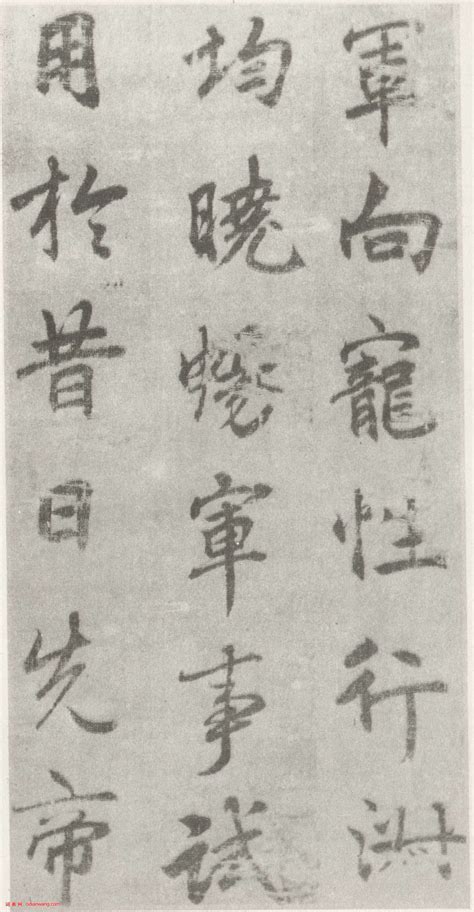 軍向寵性行淑
均曉暢軍事試
用於昔日先帝
cidianwang.com